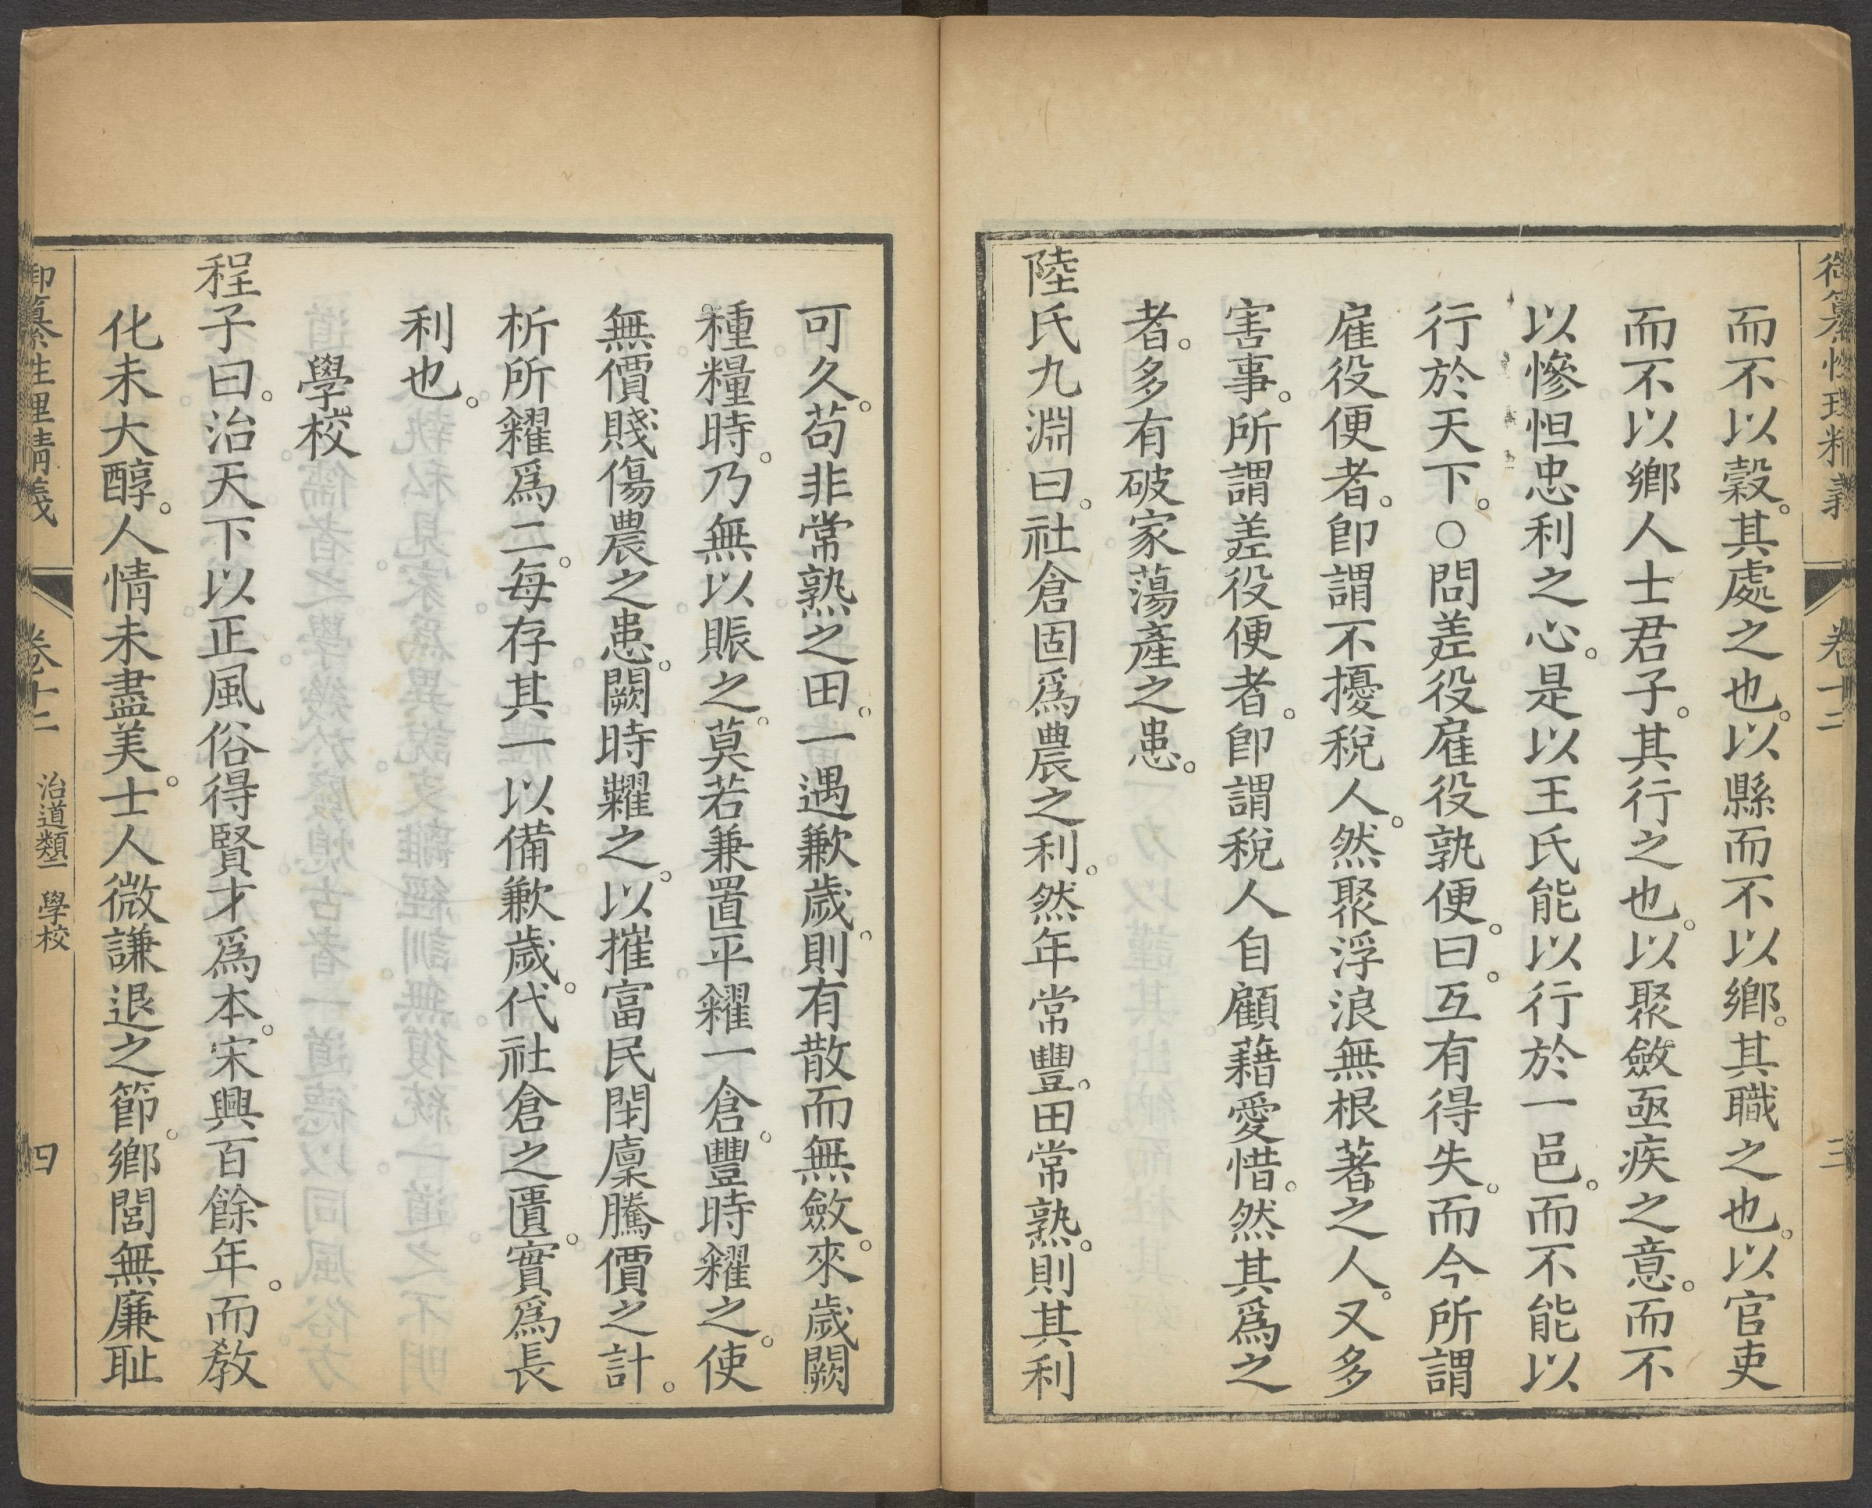 御纂性理精義
卷十二
三
而不以穀。其處之也。以縣而不以鄉。其職之也。以官吏
而不以鄉人士君子。其行之也。以聚斂亟疾之意。而不
以慘怛忠利之心。是以王氏能以行於一邑。而不能以
行於天下。○問差役雇役孰便。曰。互有得失。而今所謂
雇役便者。卽謂不擾稅人。然聚浮浪無根著之人。又多
害事。所謂差役便者。卽謂稅人自顧藉愛惜。然其爲之
者。多有破家蕩產之患。
陸氏九淵曰。社倉固爲農之利。然年常豐。田常熟。則其利
可久。苟非常熟之田。一遇歉歲。則有散而無斂。來歲闕
種糧時。乃無以賑之。莫若兼置平糴一倉。豐時糴之。使
無價賤傷農之患。闕時糶之。以摧富民閉廩騰價之計。
析所糴爲二。每存其一以備歉歲。代社倉之匱。實爲長
利也。
學校
程子曰。治天下以正風俗得賢才爲本。宋興百餘年。而教
化未大醇。人情未盡美。士人微謙退之節。鄉閭無廉耻
御纂性理精義
卷十二
治道類一 學校
四